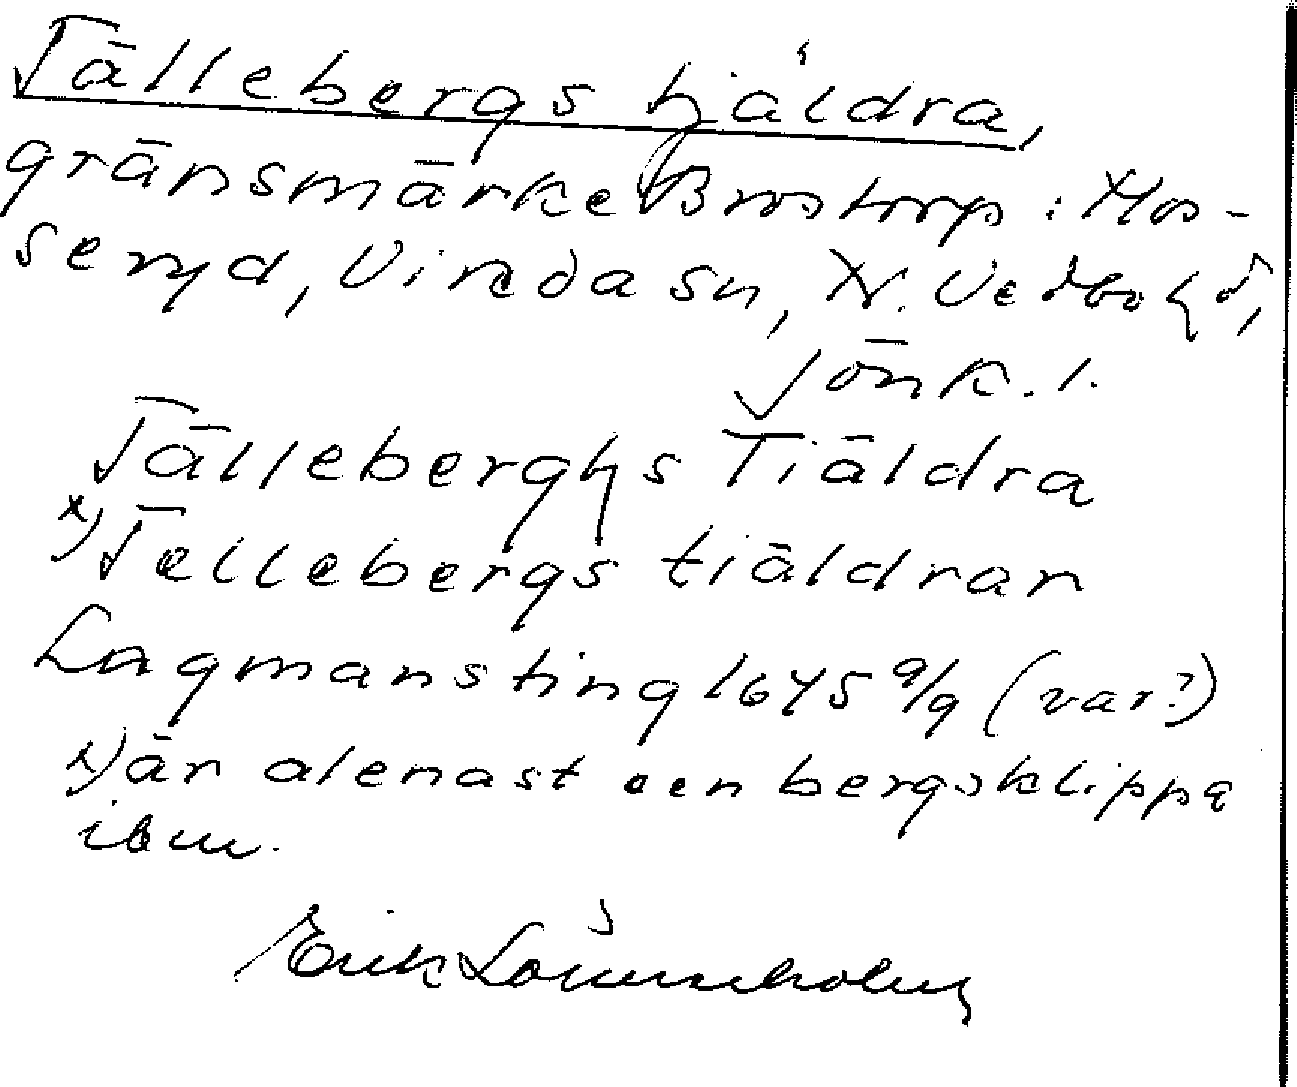 Tällebergs tjäldra,
gränsmärke Brostorp : Hos-
seryd, Vireda sn, N. Vedbo hd,
Jönk. l.
Tälleberghs Tiäldra
x) Tellebergs tiäldran
Lagmansting 1645 9/9 (var?)
x) är alenast een bergsklippa
ibm.
Erik Lönnerholm